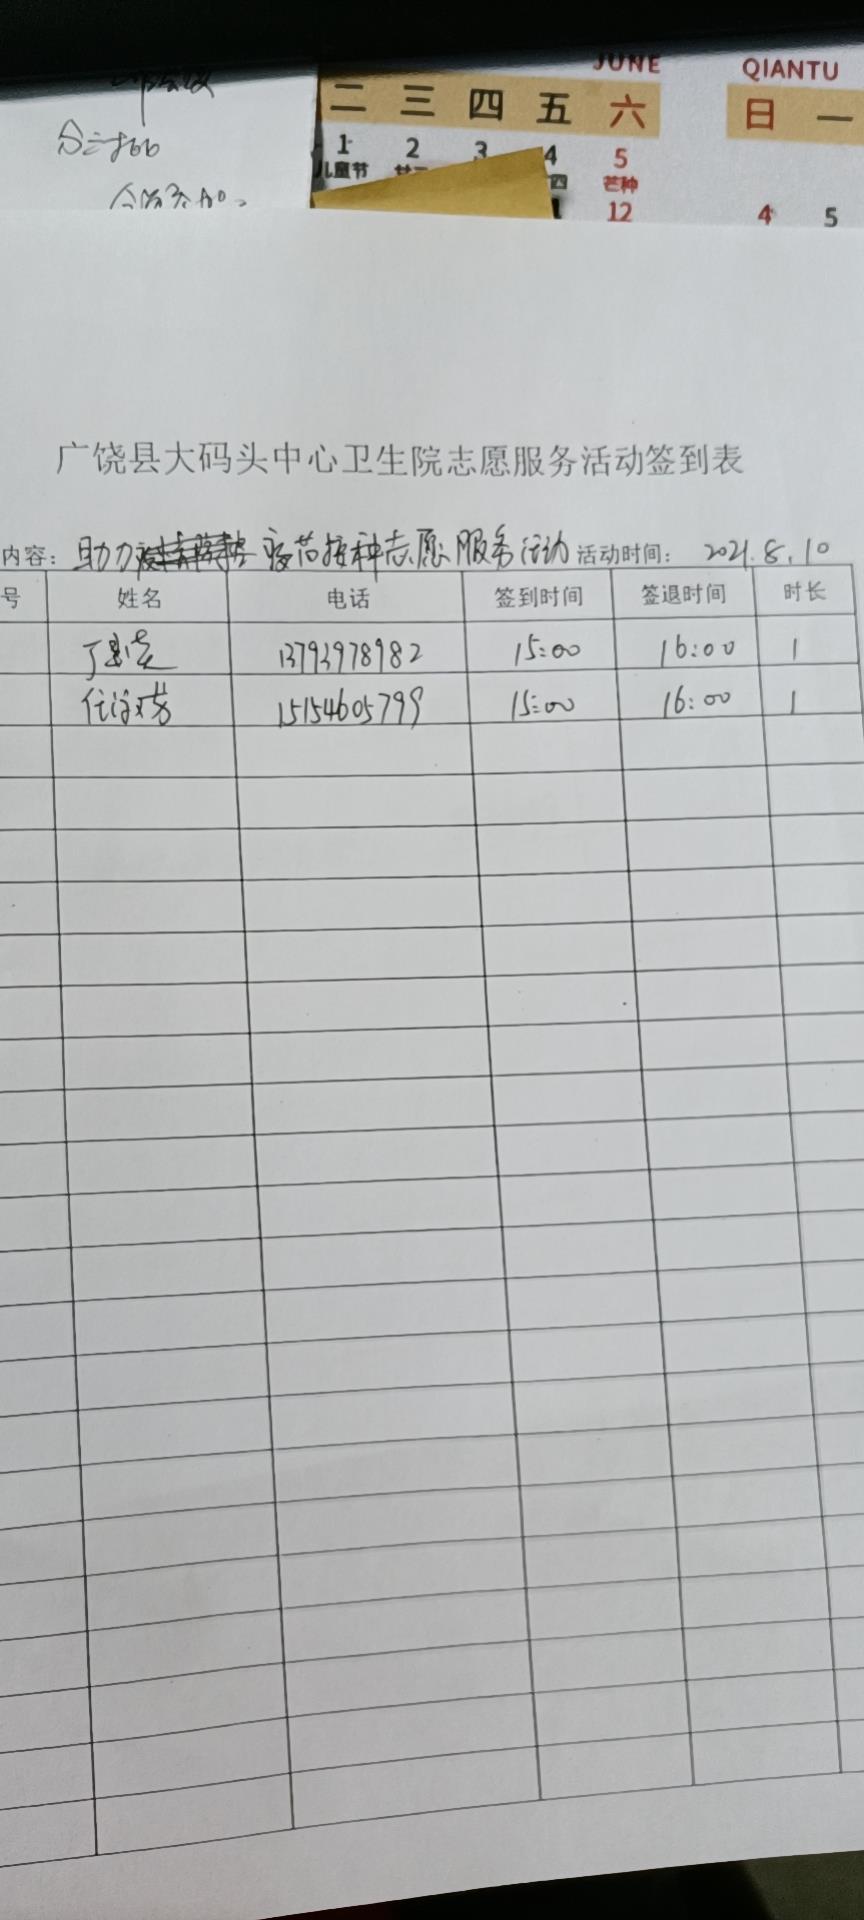 JUNE QIANTU
二 三 四 五 六 日 一
1 2 3 4 5
儿童节 芒种
12 4 5
广饶县大码头中心卫生院志愿服务活动签到表
内容: 助力 疫苗接种志愿服务活动 活动时间: 2021.8.10
号 姓名 电话 签到时间 签退时间 时长
13793978982 15:00 16:00 1
15154605799 15:00 16:00 1